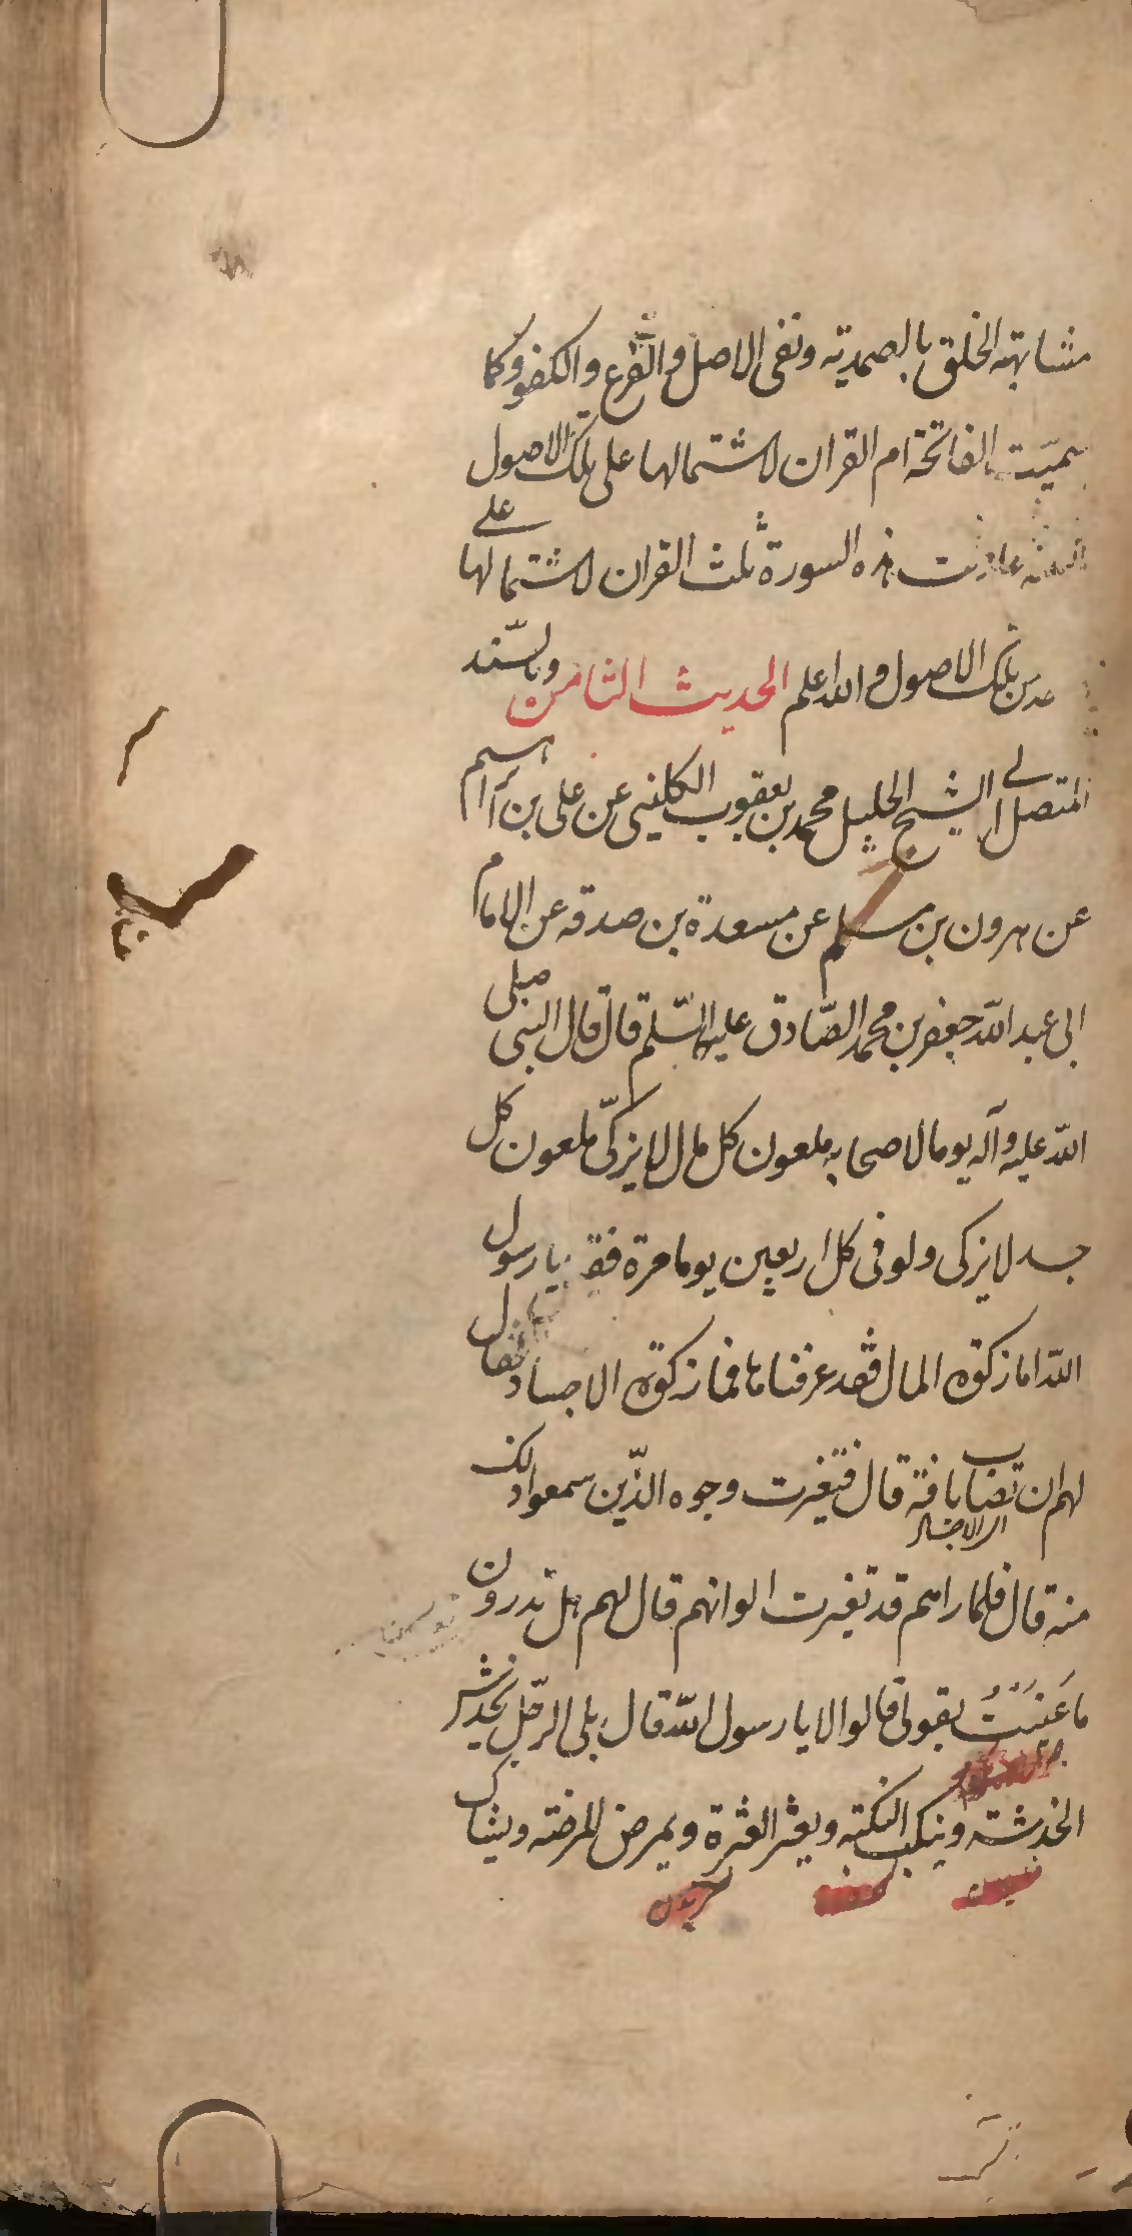 مشابهته الخلق بالصمدية ونفى الاصل والفرع والكفو وكما
سميّت الفاتحة ام القران لاشتمالها على تلك الاصول
عادلت هذه السورة ثلث القران لاشتمالها على
تلك الاصول والله اعلم الحديث الثامن وبالسّند
المتصل الى الشيخ الجليل محمد بن يعقوب الكلينى عن على بن ابراهيم
عن هرون بن مسلم عن مسعدة بن صدقه عن الامام
ابى عبد الله جعفر بن محمد الصّادق عليهما السّلم قال قال النبى صلى
الله عليه وآله يوما لاصحابه ملعون كل مال لا يزكّى ملعون كل
جسد لا يزكى ولو فى كل اربعين يوما مرة فقيل يا رسول
الله اما زكوة المال فقد عرفناها فما زكوة الاجساد فقال
لهم ان تصاب بافة قال فتغيرت وجوه الذّين سمعوا ذلك
منه قال فلما راهم قد تغيرت الوانهم قال لهم هل تدرون
ما عَنَيْتُ بقولى قالوا لا يا رسول الله قال بلى الرجل يخدش
الخدشة وينكب النكبته ويعثر العثرة ويمرض المرضته ويشاك